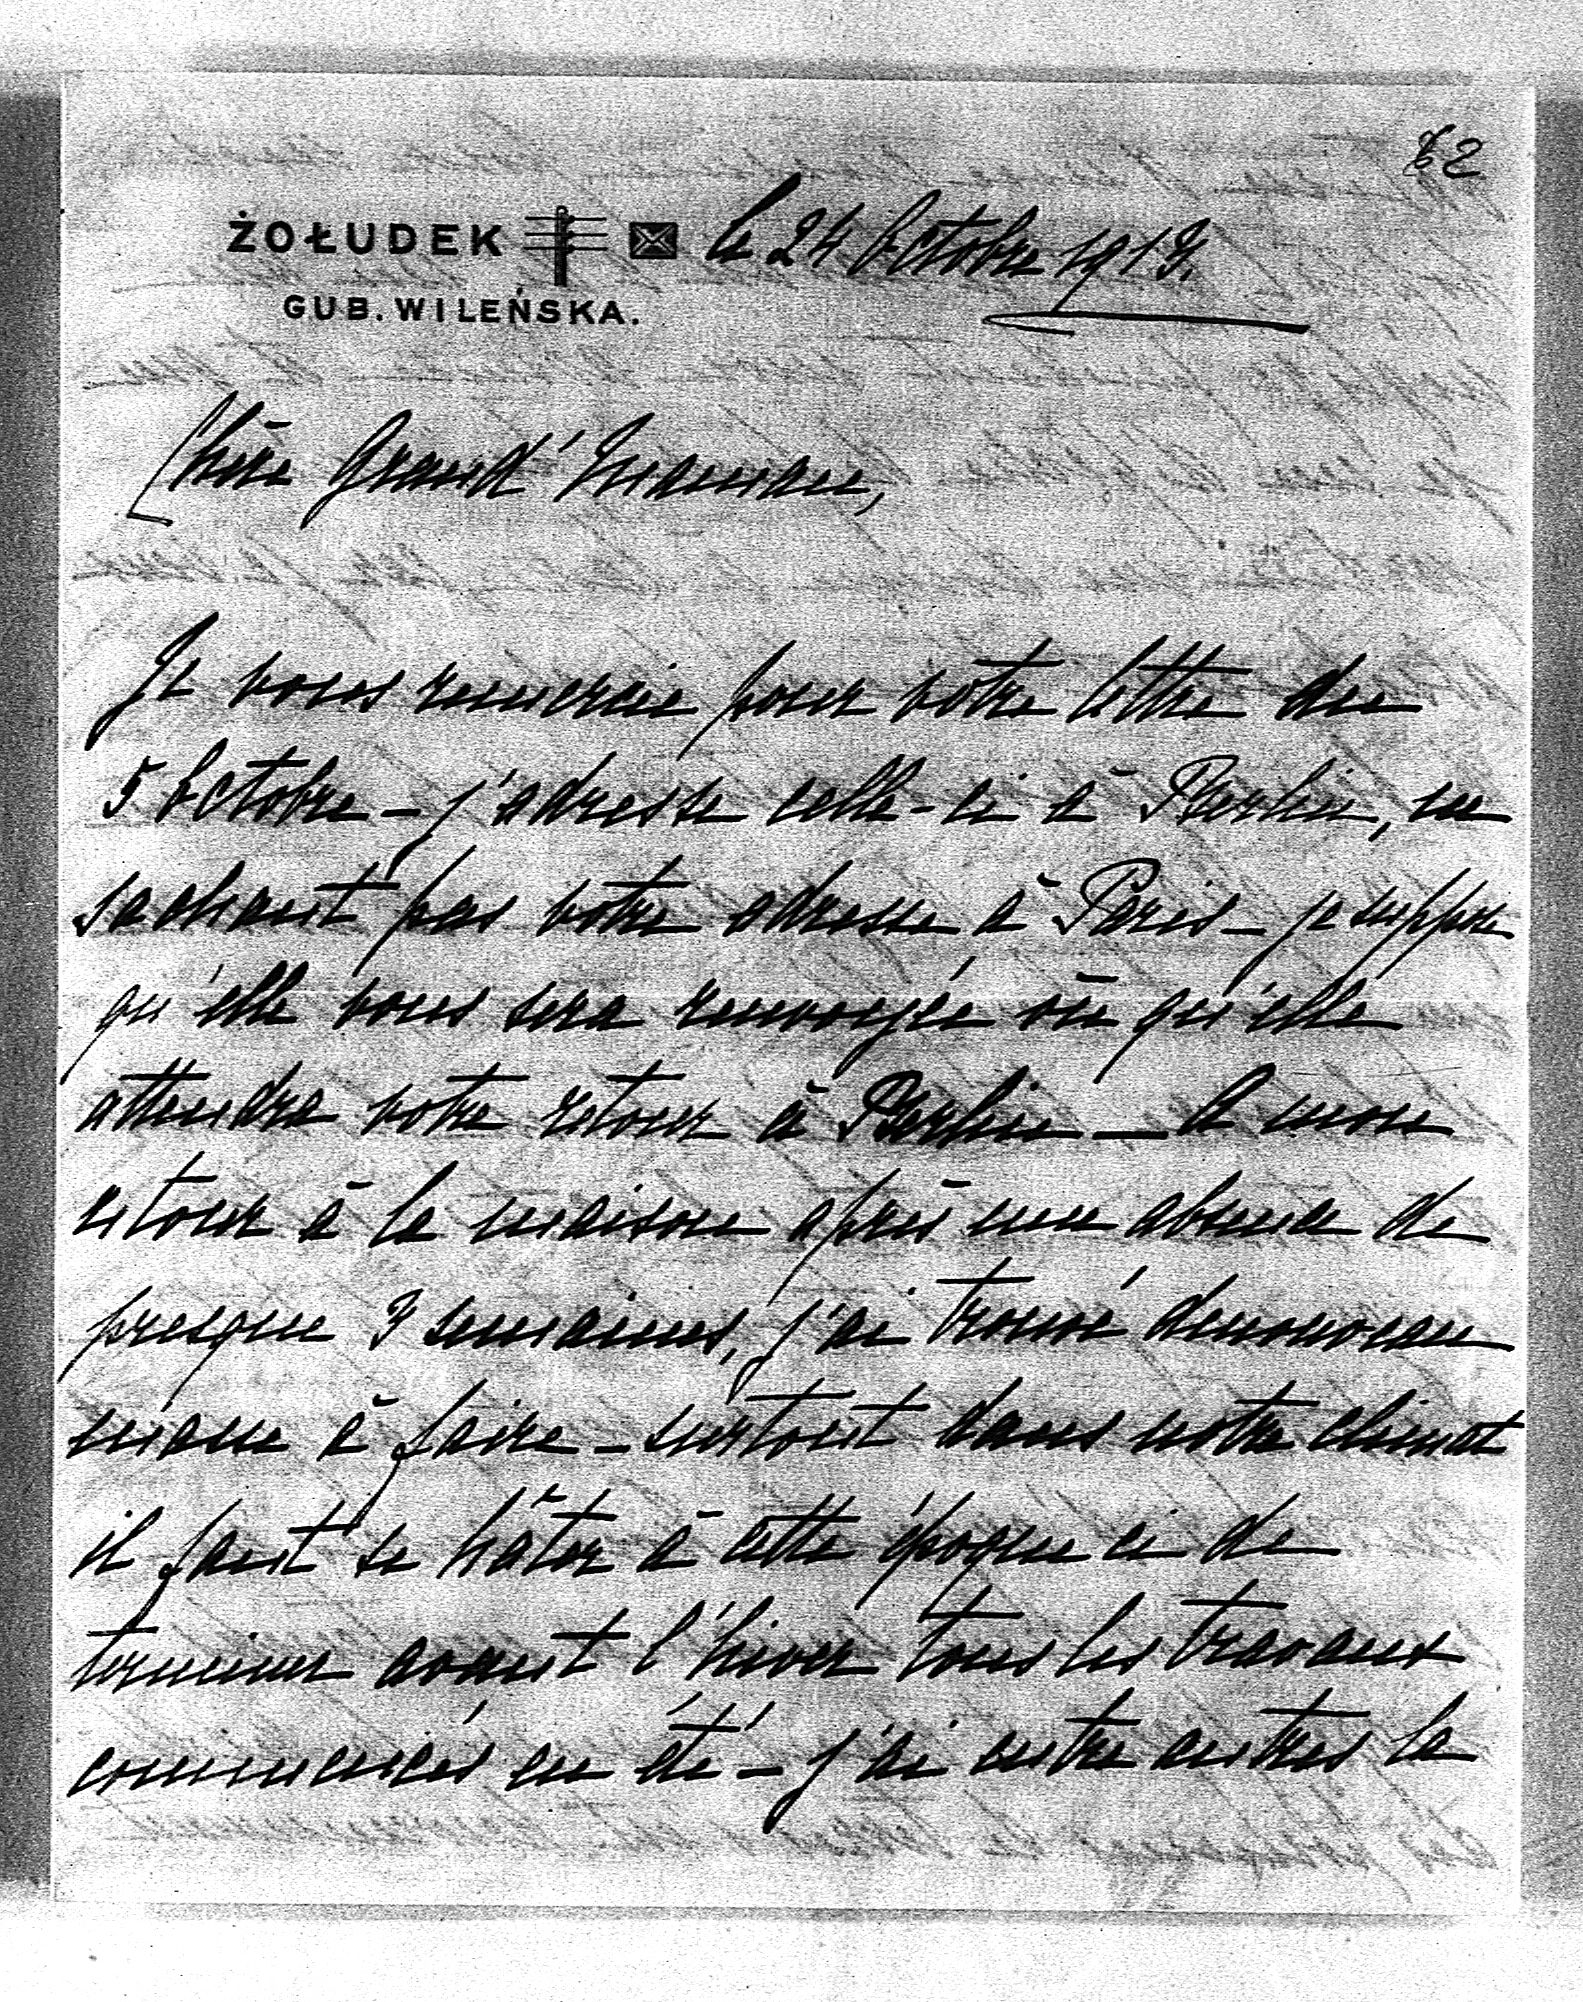 62
ŻOŁUDEK le 24 Octobre 1913.
GUB. WILEŃSKA.
Chère Grand'Maman,
Je vous remercie pour votre lettre du
5 Octobre – j'adresse celle-ci à Berlin, ne
sachant pas votre adresse à Paris – je suppose
qu'elle vous sera renvoyée où qu'elle
attendra votre retour à Berlin – A mon
retour à la maison après une absence de
presque 3 semaines, j'ai trouvé denouveau
masse à faire – surtout dans notre climat
il faut se hâter à cette époque ci de
terminer avant l'hiver tous les travaux
commencés en été – j'ai entre autres la